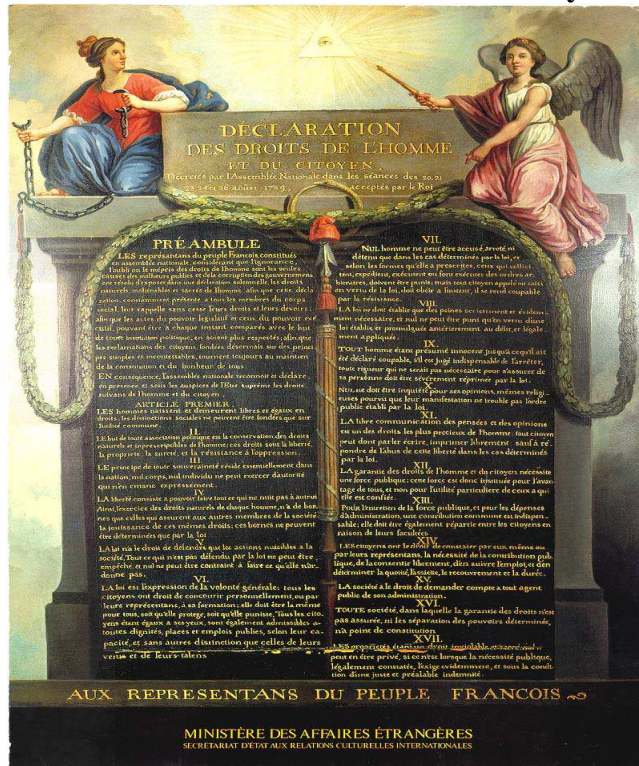 DÉCLARATION
DES DROITS DE L'HOMME
ET DU CITOYEN,
Décretés par l'Assemblée Nationale dans les séances des 20, 21
23, 24 et 26 aoust 1789, acceptés par le Roi
PRÉAMBULE
LES représentans du peuple François constitués
en assemblée nationale, considérant que l'ignorance,
l'oubli ou le mépris des droits de l'homme sont les seules
causes des malheurs publics et de la corruption des gouvernemens
ont résolu d'exposer dans une déclaration solemnelle, les droits
naturels inaliénables et sacrés de l'homme; afin que cette décla
ration, constamment présente a tous les membres du corps
social, leur rappelle sans cesse leurs droits et leurs devoirs;
afin que les actes du pouvoir législatif et ceux du pouvoir exé
cutif, pouvant être à chaque instant comparés avec le but
de toute institution politique, en soient plus respectés; afin que
les reclamations des citoyens, fondées désormais sur des princi
pes simples et incontestables, tournent toujours au maintien
de la constitution et du bonheur de tous.
EN conséquence, l'assemblée nationale reconnoit et déclare
en presence et sous les auspices de l'Etre suprême les droits
suivans de l'homme et du citoyen.
ARTICLE PREMIER.
LES hommes naissent et demeurent libres et égaux en
droits, les distinctions sociales ne peuvent être fondées que sur
l'utilité commune.
II.
LE but de toute association politique est la conservation des droits
naturels et imprescriptibles de l'homme; ces droits sont la liberté,
la propriété, la sureté, et la résistance à l'oppression.
III.
LE principe de toute souveraineté réside essentiellement dans
la nation, nul corps, nul individu ne peut exercer d'autorité
qui n'en émane expressement.
IV.
LA liberté consiste à pouvoir faire tout ce qui ne nuit pas à autrui
Ainsi, l'exercice des droits naturels de chaque homme, n'a de bor
nes que celles qui assurent aux autres membres de la société
la jouissance de ces mêmes droits; ces bornes ne peuvent
être déterminées que par la loi
V.
LA loi n'a le droit de défendre que les actions nuisibles à la
société. Tout ce qui n'est pas défendu par la loi ne peut être
empêché, et nul ne peut être contraint à faire ce qu'elle n'or-
donne pas.
VI.
LA loi est l'expression de la volonté générale; tous les
citoyens ont droit de concourir personnellement, ou par
leurs représentans, à sa formation; elle doit être la même
pour tous, soit qu'elle protege, soit qu'elle punisse. Tous les cito
yens étant égaux à ses yeux, sont également admissibles a
toutes dignités, places et emplois publics, selon leur ca
pacité, et sans autres distinction que celles de leurs
vertus et de leurs talens.
VII.
NUL homme ne peut être accusé, arreté, ni
détenu que dans les cas déterminés par la loi, et
selon les formes qu'elle a prescrites, ceux qui sollici
tent, expédient, exécutent ou font exécuter des ordres ar
bitraires, doivent être punis; mais tout citoyen appelé ou saisi
en vertu de la loi, doit obéir a l'instant, il se rend coupable
par la résistance.
VIII.
LA loi ne doit établir que des peines strictement et évidem
ment nécessaire, et nul ne peut être puni qu'en vertu d'une
loi établie et promulguée antérierement au délit, et légale
ment appliquée.
IX.
TOUT homme étant présumé innocent jusqu'à ce qu'il ait
été déclaré coupable, s'il est jugé indispensable de l'arrêter,
toute rigueur qui ne serait pas nécessaire pour s'assurer de
sa personne doit être sévèrement réprimée par la loi.
X.
NUL ne doit être inquiété pour ses opinions, mêmes religi-
euses pourvu que leur manifestation ne trouble pas l'ordre
public établi par la loi.
XI.
LA libre communication des pensées et des opinions
est un des droits les plus precieux de l'homme: tout citoyen
peut donc parler, écrire, imprimer librement: sauf à ré
pondre de l'abus de cette liberté dans les cas déterminés
par la loi.
XII.
LA garantie des droits de l'homme et du citoyen nécessite
une force publique; cette force est donc instituée pour l'avan-
tage de tous, et non pour l'utilité particuliere de ceux a qui
elle est confiée.
XIII.
Pour l'entretien de la force publique, et pour les dépenses
d'administration, une contribution commune est indispen-
sable; elle doit être également répartie entre les citoyens en
raison de leurs facultées.
XIV.
LES citoyens ont le droit de constater par eux même ou
par leurs représentans, la nécessité de la contribution pub
lique, de la consentir librement, d'en suivre l'emploi, et d'en
déterminer la quotité, l'assiette, le recouvrement et la durée.
XV.
LA société a le droit de demander compte a tout agent
public de son administration.
XVI.
TOUTE société, dans laquelle la garantie des droits n'est
pas assurée, ni les séparation des pouvoirs déterminée,
n'a point de constitution.
XVII.
LES propriétés étant un droit inviolable et sacré, nul ne
peut en être privé, si ce n'est lorsque la nécessité publique,
légalement constatée, l'exige evidemment, et sous la condi
tion d'une juste et préalable indemnité.
AUX REPRESENTANS DU PEUPLE FRANCOIS
MINISTÈRE DES AFFAIRES ÉTRANGÈRES
SECRÉTARIAT D'ÉTAT AUX RELATIONS CULTURELLES INTERNATIONALES